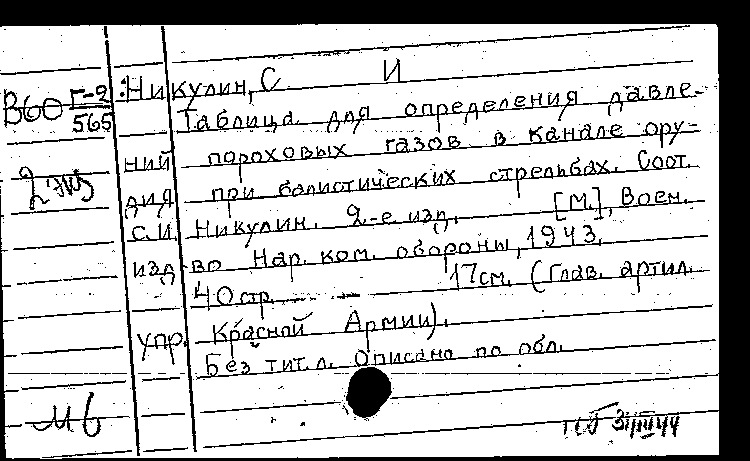 В60 Г-2/565 : Никулин, С И
Таблица для определения давле-
ний пороховых газов в канале ору-
2 экз
дия при балистических стрельбах. Сост.
С.И. Никулин. 2-е изд. [М.], Воен.
изд-во Нар. ком. обороны, 1943.
40 стр. 17 см. (Глав. артил.
упр. Красной Армии).
Без тит. л. Описано по обл.
М6
31/III 44